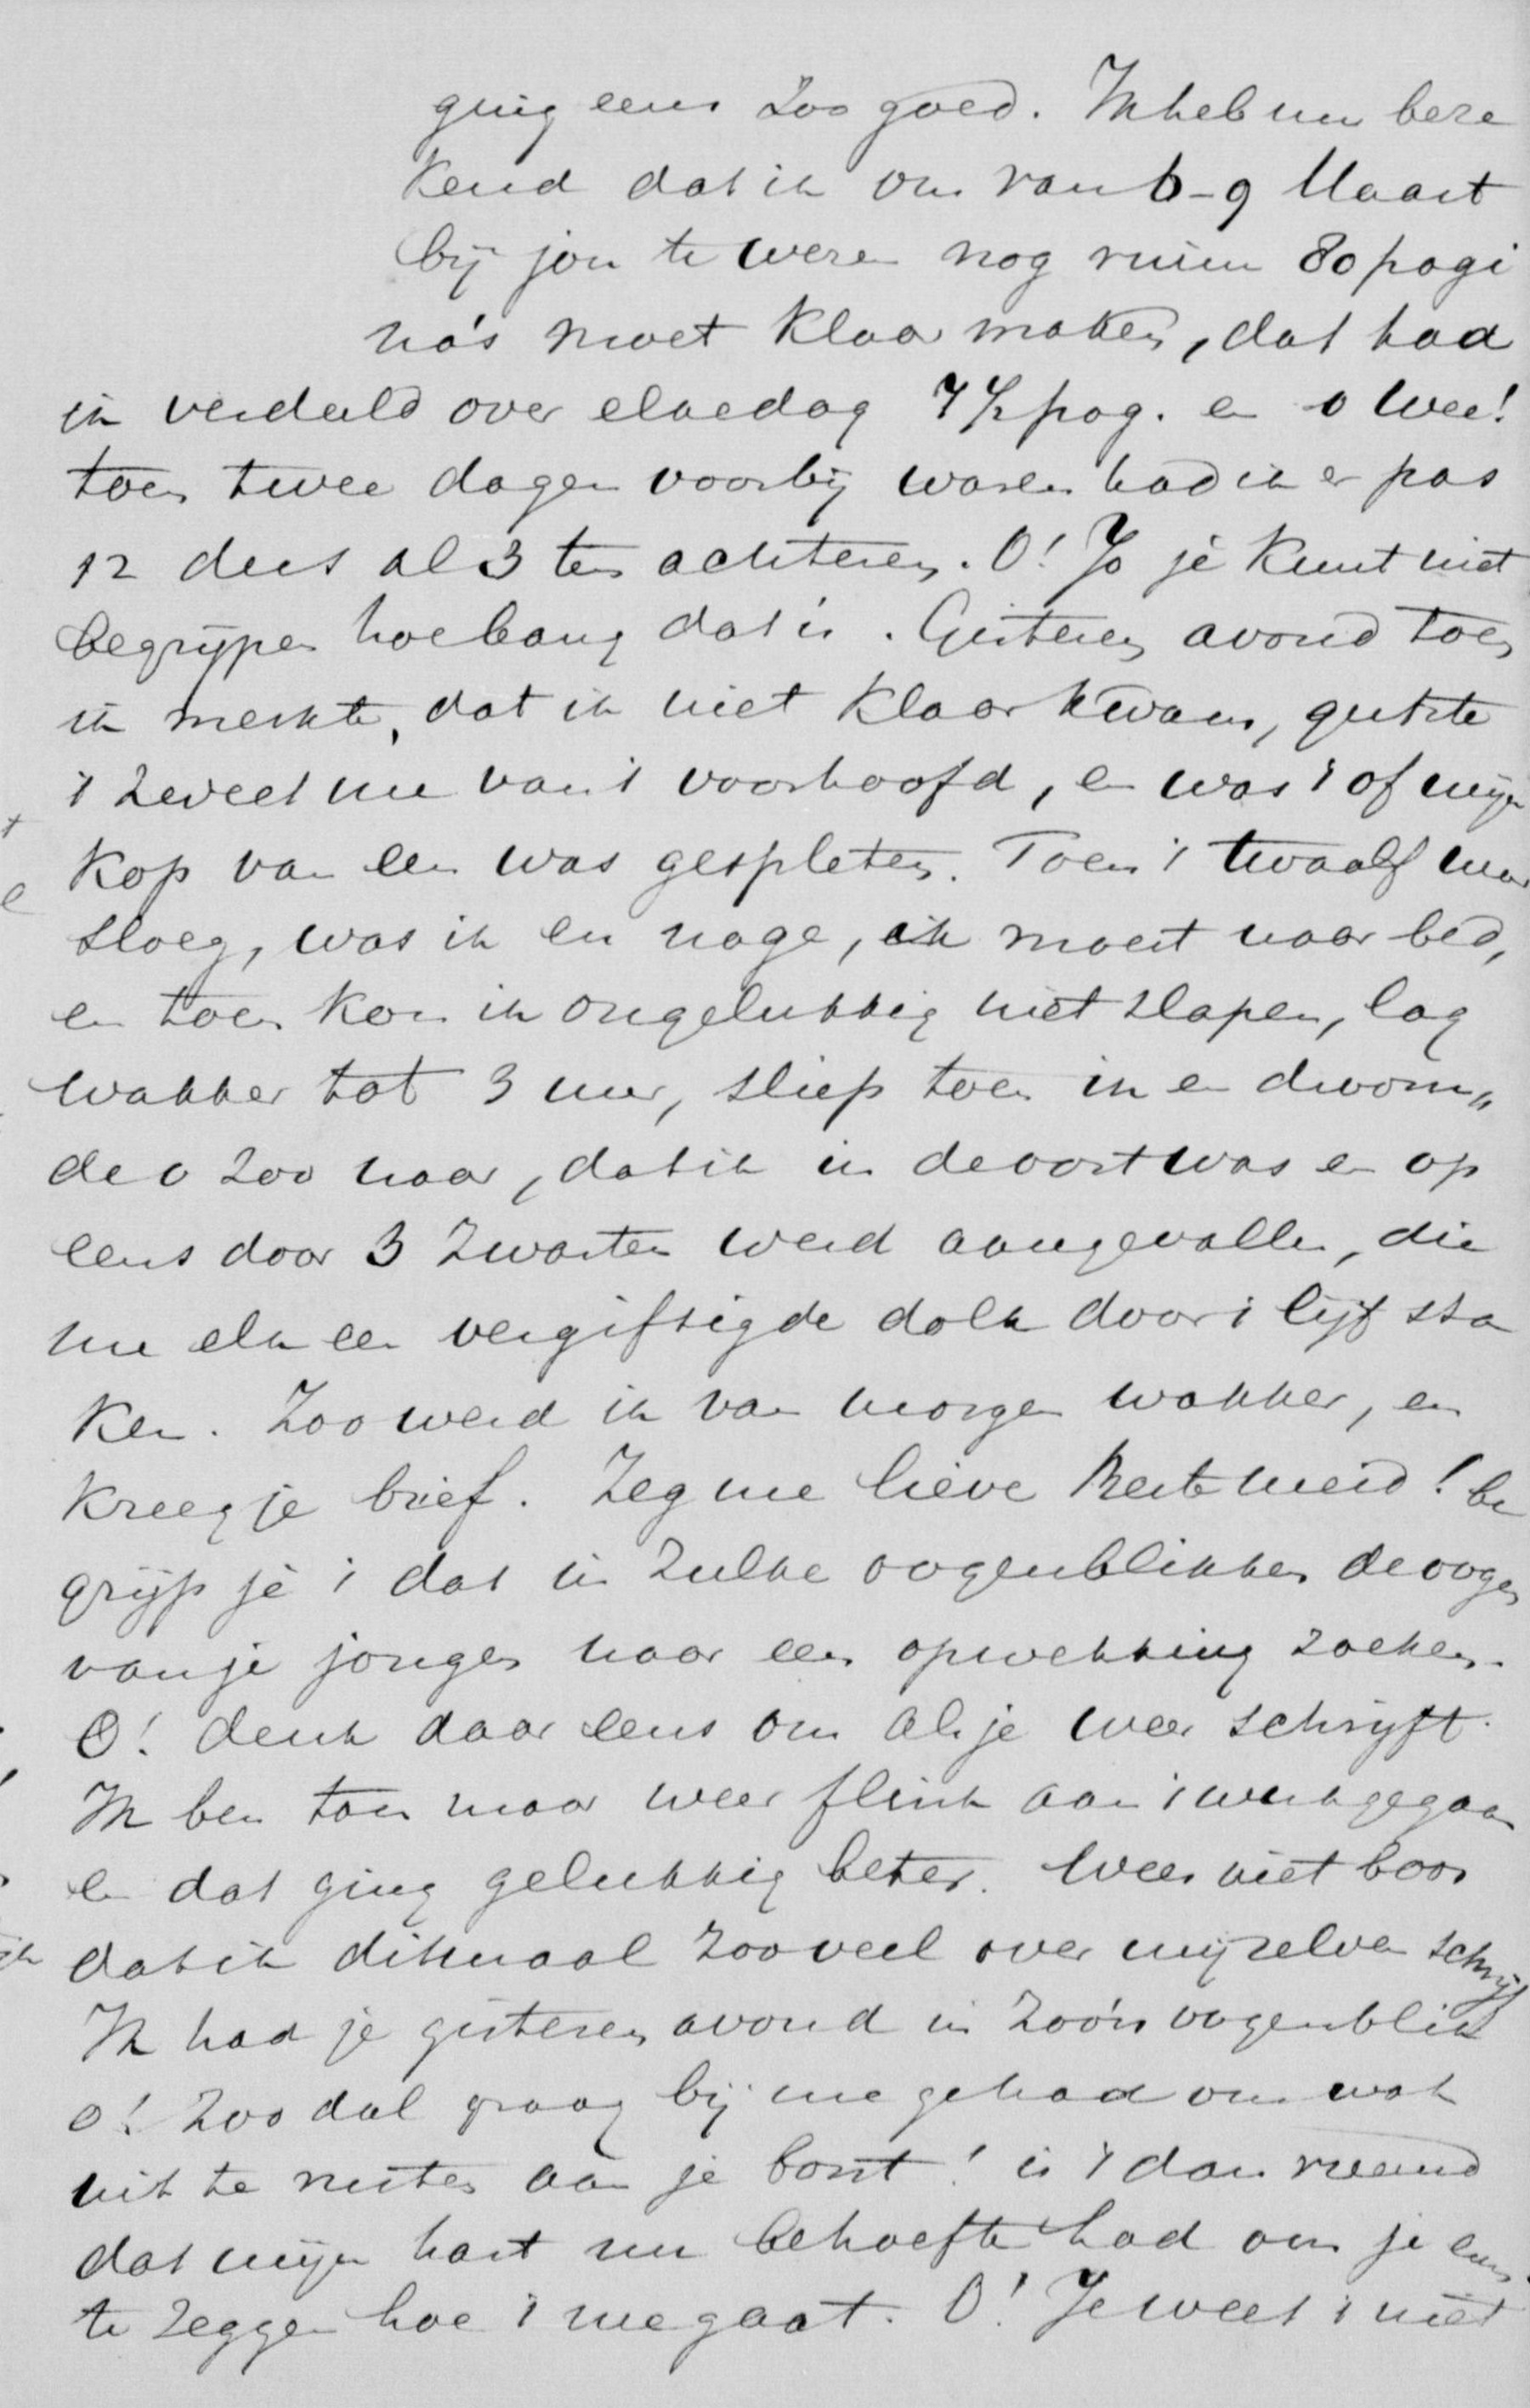 ging eens zoo goed. Ik heb nu bere
kend dat ik om van 6-9 Maart
bij jou te weze nog ruim 80 pagi
na's moet klaar maken, dat had
ik verdeeld over elke dag 7½ pag. en o wee!
toen twee dagen voorbij waren had ik er pas
12 dus al 3 ten achteren. O! Jo je kunt niet
begrijpen hoe bang dat is. Gisteren avond toen
ik merkte, dat ik niet klaar kwam, gutste
't zweet me van 't voorhoofd, en was 't of mijn
kop van een was gespleten. Toen 't twaalf uur
sloeg, was ik en nage, ik moest naar bed,
en toen kon ik ongelukkig niet slapen, lag
wakker tot 3 uur, sliep toen in en droom„
de o zoo naar, dat ik in de oost was en op
eens door 3 zwarten werd aangevallen, die
me elk een vergiftigde dolk door 't lijf sta
ken. Zoo werd ik van morgen wakker, en
kreeg je brief. Zeg me lieve Beste meid! be
grijp je 't dat in zulke oogenblikken de oogen
van je jongen naar een opwekking zoeken.
O! denk daar eens om als je weer schrijft.
Ik ben toen maar weer flink aan 't werk gegaan
en dat ging gelukkig beter. Wees niet boos
dat ik ditmaal zooveel over mijzelven schrijf
Ik had je gisteren avond in zoo'n oogenblik
o! zoo dol graag bij me gehad om wat
uit te rusten aan je borst! is 't dan vreemd
dat mijn hart nu behoefte had om je eens
te zeggen hoe 't me gaat. O! Je weet 't niet